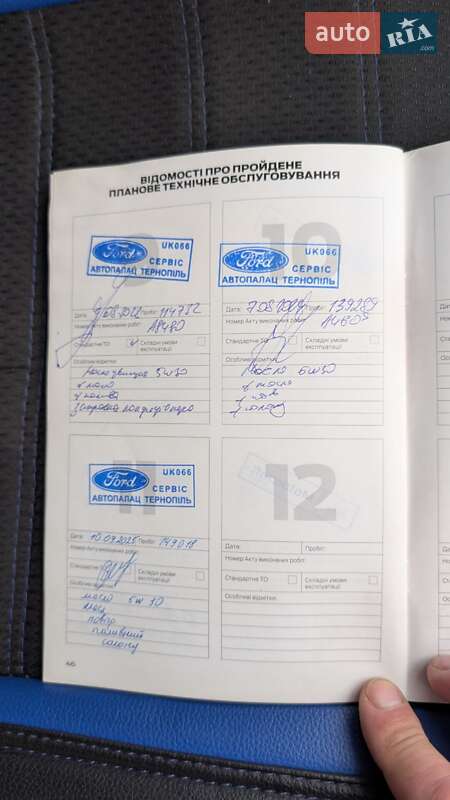 auto RIA.com
ВІДОМОСТІ ПРО ПРОЙДЕНЕ
ПЛАНОВЕ ТЕХНІЧНЕ ОБСЛУГОВУВАННЯ
9
Ford UK066
СЕРВІС
АВТОПАЛАЦ ТЕРНОПІЛЬ
Дата: Пробіг: 114752
Номер Акту виконаних робіт: 18480
Стандартне ТО Складні умови експлуатації
Особливі відмітки:
5W30
10
Ford UK066
СЕРВІС
АВТОПАЛАЦ ТЕРНОПІЛЬ
Дата: Пробіг: 139289
Номер Акту виконаних робіт:
Стандартне ТО Складні умови експлуатації
Особливі відмітки:
Масло 5W30
ф масло
11
Ford UK066
СЕРВІС
АВТОПАЛАЦ ТЕРНОПІЛЬ
Дата: 10.09.2025 Пробіг: 149018
Номер Акту виконаних робіт:
Стандартне ТО Складні умови експлуатації
Особливі відмітки:
масло 5W30
повітр
паливний
салону
12
Дата: Пробіг:
Номер Акту виконаних робіт:
Стандартне ТО Складні умови експлуатації
Особливі відмітки: